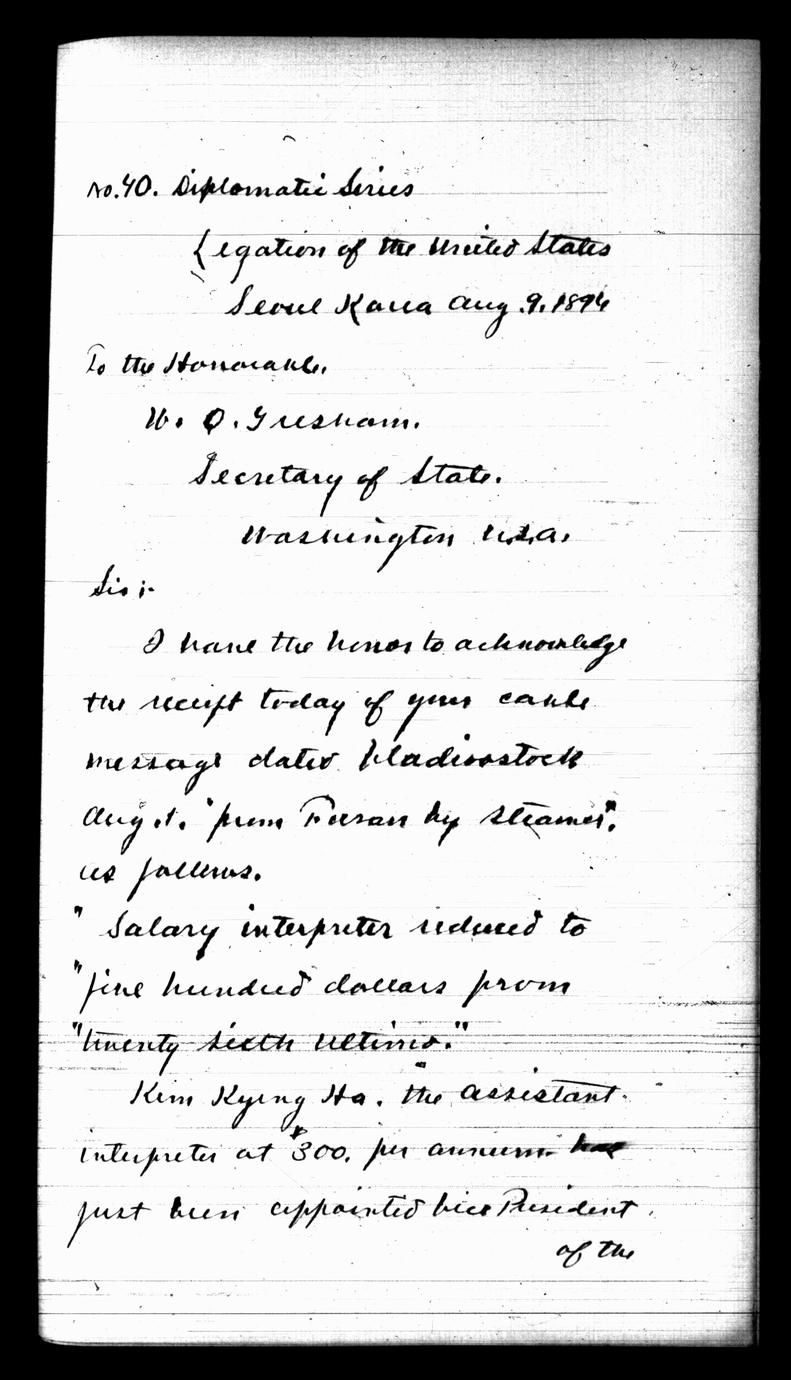 No. 40. Diplomatic Series
Legation of the United States
Seoul Korea Aug. 9. 1894
To the Honorable.
W. Q. Gresham.
Secretary of State.
Washington U.S.A.
Sir:-
I have the honor to acknowledge
the receipt today of your cable
message dated Vladivostock
Aug. 1. "from Fusan by steamer".
as follows.
" Salary interpreter reduced to
"five hundred dollars from
"twenty sixth ultimo."
Kim Kyeng Ha. the assistant
interpreter at $300. per annum has
just been appointed Vice President
of the